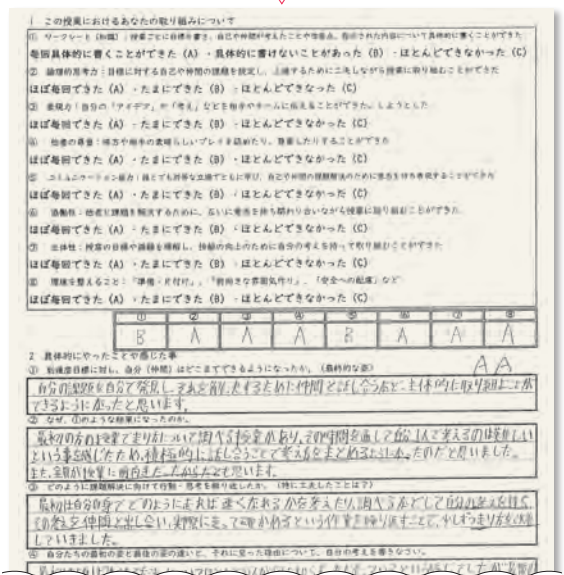 1 この授業におけるあなたの取り組みについて
毎回具体的に書くことができた (A) ・具体的に書けないことがあった (B) ・ほとんどできなかった (C)
② 論理的思考力：目標に対する自己や仲間の課題を設定し、上達するために工夫しながら授業に取り組むことができた
ほぼ毎回できた (A) ・たまにできた (B) ・ほとんどできなった (C)
③ 表現力：自分の「アイデア」や「考え」などを相手やチームに伝えることができた。しようとした
ほぼ毎回できた (A) ・たまにできた (B) ・ほとんどできなかった (C)
ほぼ毎回できた (A) ・たまにできた (B) ・ほとんどできなかった (C)
ほぼ毎回できた (A) ・たまにできた (B) ・ほとんどできなかった (C)
ほぼ毎回できた (A) ・たまにできた (B) ・ほとんどできなかった (C)
⑦ 主体性：授業の目標や課題を理解し、技能の向上のために自分の考えを持って取り組むことができた
ほぼ毎回できた (A) ・たまにできた (B) ・ほとんどできなかった (C)
⑧ 環境を整えること：「準備・片付け」、「前向きな雰囲気作り」、「安全への配慮」など
ほぼ毎回できた (A) ・たまにできた (B) ・ほとんどできなかった (C)
① ② ③ ④ ⑤ ⑥ ⑦ ⑧
B A A A B A A A
2 具体的にやったことや感じた事
AA
① 到達度目標に対し、自分（仲間）はどこまでできるようになったか。（最終的な姿）
自分の課題を自分で発見し、それを解決するために仲間と話し合うなど、主体的に取り組むことが
できるようになったと思います。
② なぜ、①のような結果になったのか。
最初の方の授業で走り方について調べる授業があり、その時間を通して自分1人で考えるのは難しい
という事を感じたため、積極的に話し合うことで考え方をまとめるようになったのだと思いました。
また、全員が授業に前向きだったからだとも思います。
③ どのように課題解決に向けて行動・思考を繰り返したか。（特に工夫したことは？）
最初は自分自身でどのように走れば速くなれるかを考えたり、調べるなどして自分の考えを持ち、
その考えを仲間と出し合い、実際に走って確かめるという作業を繰り返すことで、少しずつ走り方を改善
していきました。
④ 自分たちの最初の姿と最後の姿の違いと、それに至った理由について、自分の考えを書きなさい。